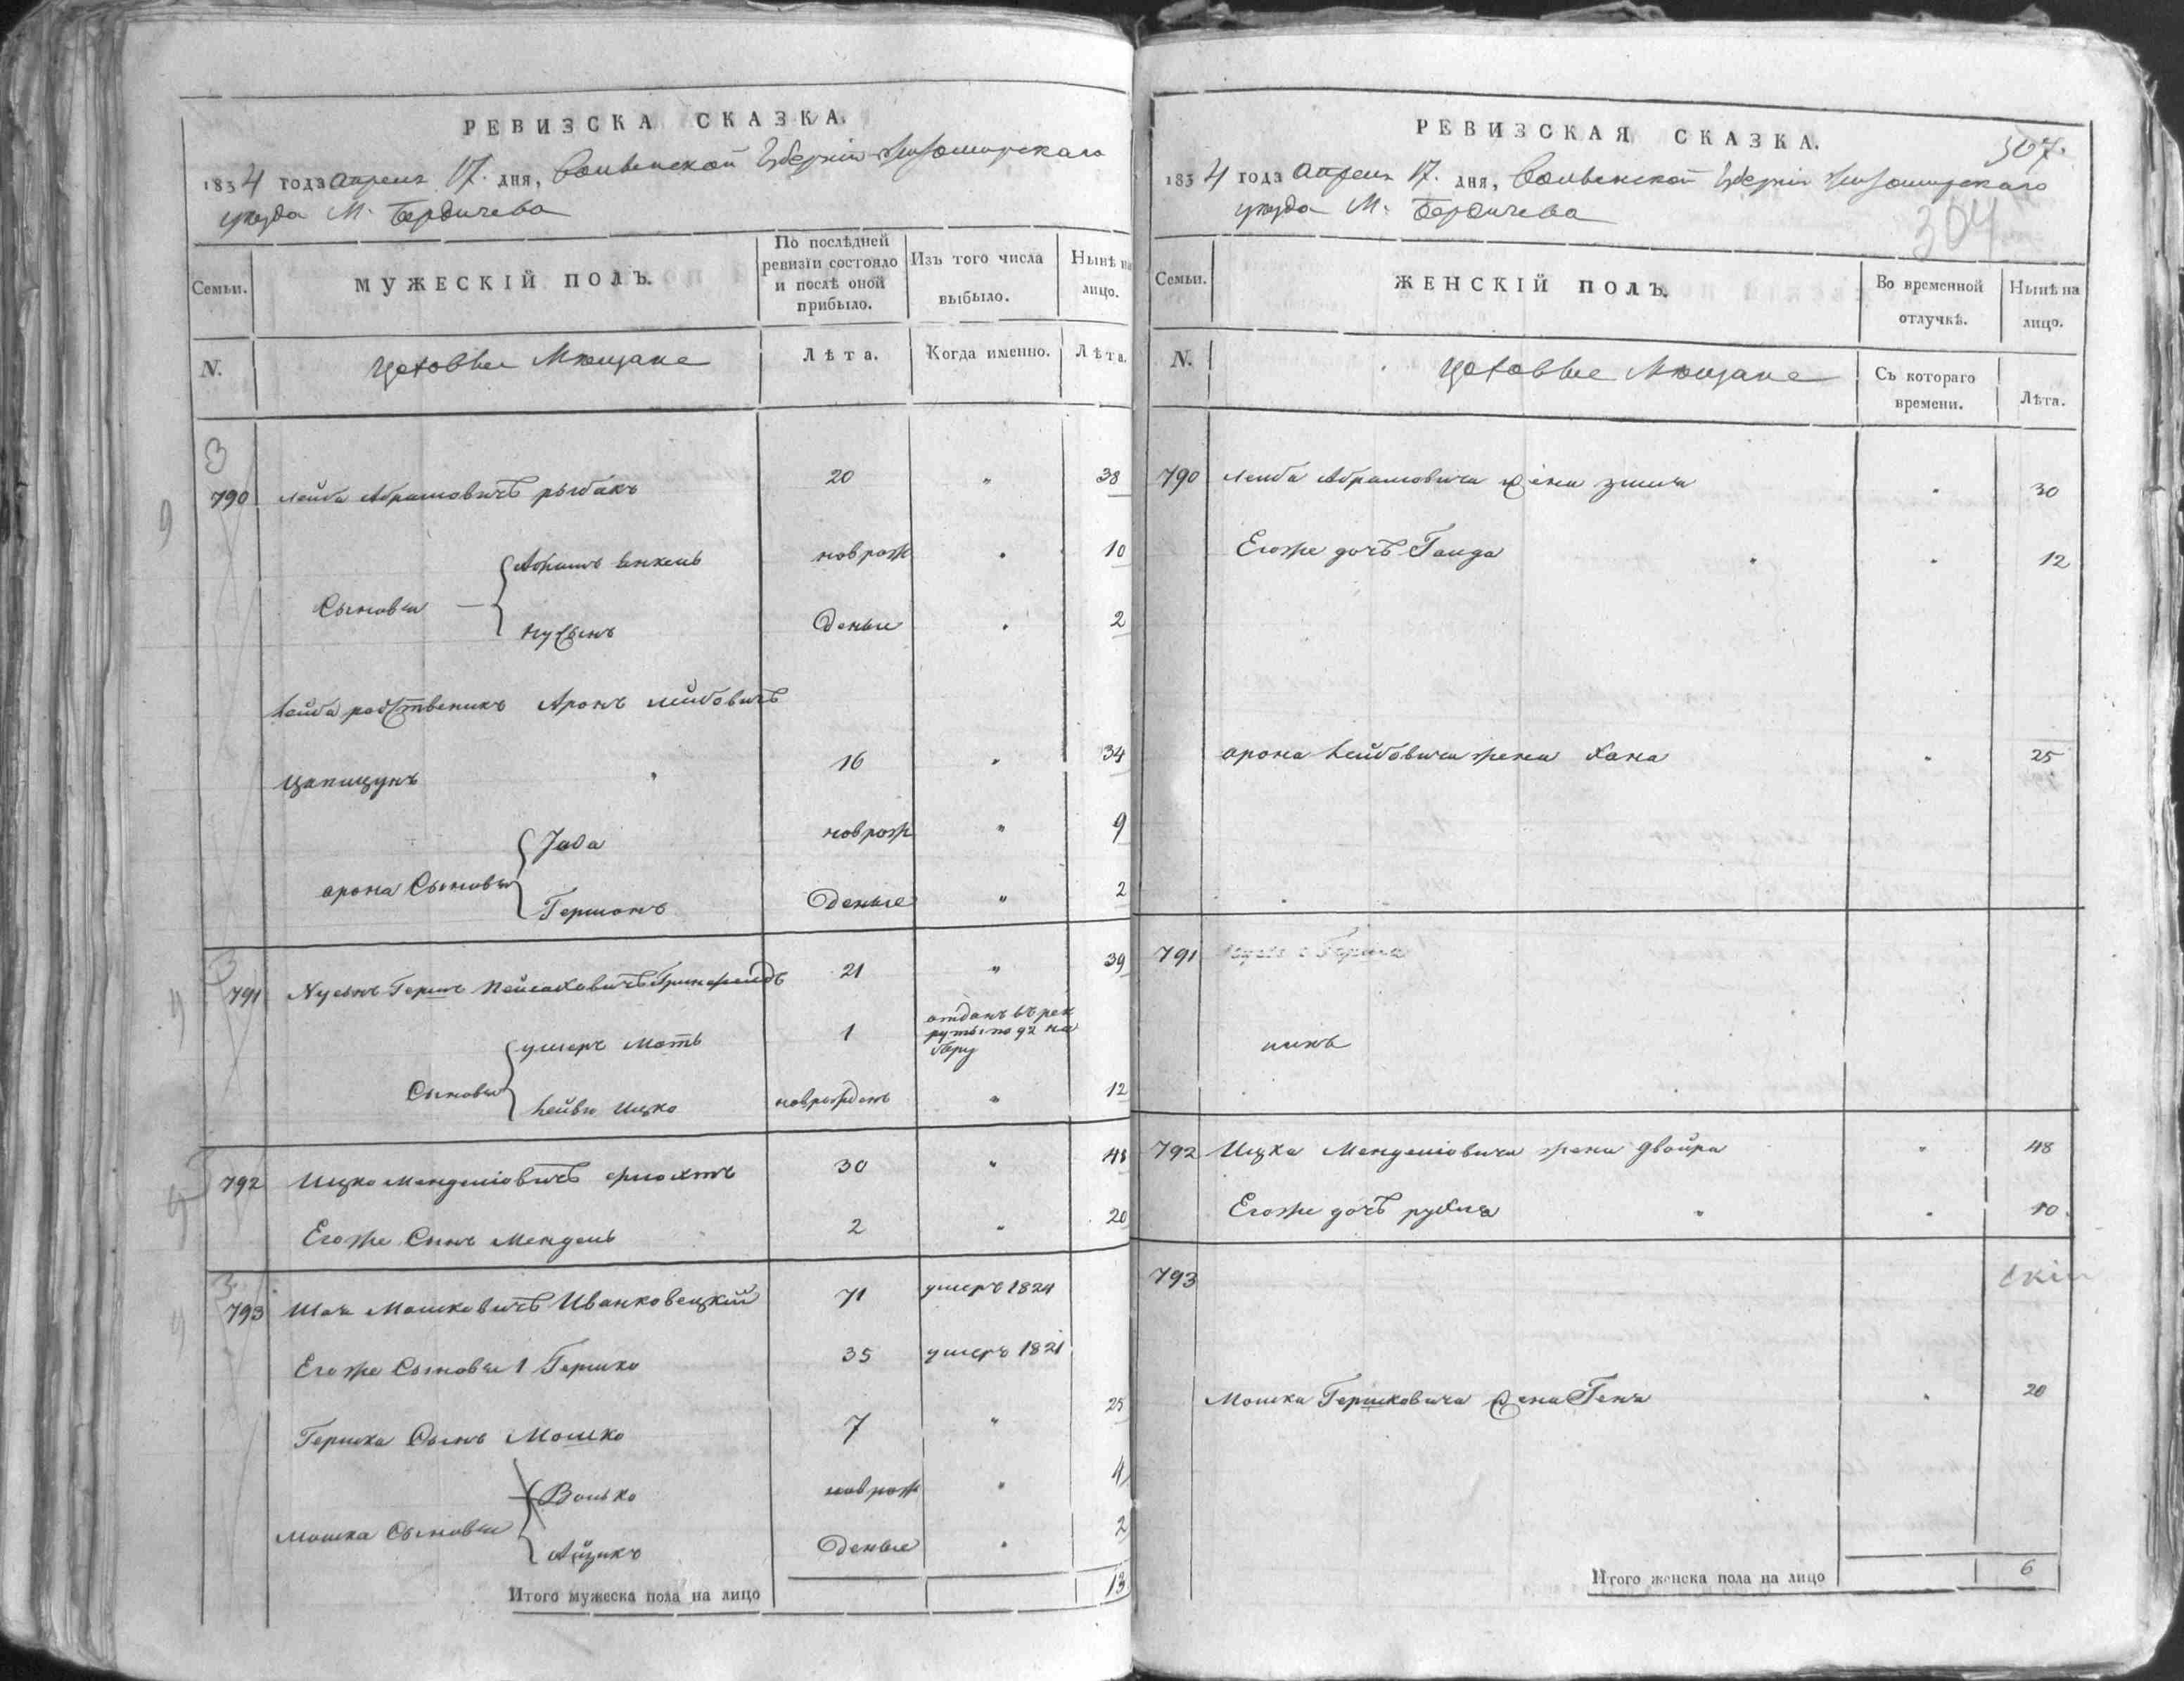 РЕВИЗСКА СКАЗКА.
1834 года апреля 17. дня, Волынской Губерніи Житомирскаго
уезда М. Бердичева
Семьи.
МУЖЕСКІЙ ПОЛЪ.
По послѣдней
ревизіи состояло
и послѣ оной
прибыло.
Изъ того числа
выбыло.
Нынѣ на
лицо.
N.
Цеховые Мещане
Лѣта.
Когда именно.
Лѣта.
3
790 Лейба Абрамовичъ рыбакъ 20 " 38
Сыновья
новрож 10
Нусынъ Деные 2
Лейба родственикъ Аронъ Лейбовичъ
16 " 34
новрож " 9
арона Сыновья
Гершонъ Деные " 2
791 Нусынъ Гершъ Пейсаховичъ 21 " 39
Сыновья
1 отданъ въ рек
руты по 92 на
бору
Лейба Ицко новрожденъ " 12
792 Ицко Менделіовичъ 30 " 48
Егоже Сынъ Мендель 2 " 20
793 Мошковичъ Иванковецкій 71 умеръ 1824
Егоже Сыновья 1 Гершко 35 умеръ 1821
Гершка Сынъ Мошко 7 " 25
Волько новрож " 4
Мошка Сыновья
Айзикъ Деные 2
Итого мужеска пола на лицо 13
РЕВИЗСКАЯ СКАЗКА.
307.
1834 года апреля 17. дня, Волынской Губерніи Житомирскаго
уезда М. Бердичева
304
Семьи.
ЖЕНСКІЙ ПОЛЪ.
Во временной
отлучкѣ.
Нынѣ на
лицо.
N.
Цеховые Мещане
Съ котораго
времени.
Лѣта.
790 Лейба Абрамовича жена 30
Егоже дочъ 12
арона Лейбовича жена Хана " 25
791
792 Ицка Менделіовича жена Двойра " 48
Егоже дочъ Рухля " 10
793
Мошка Гершковича жена 20
Итого женска пола на лицо 6